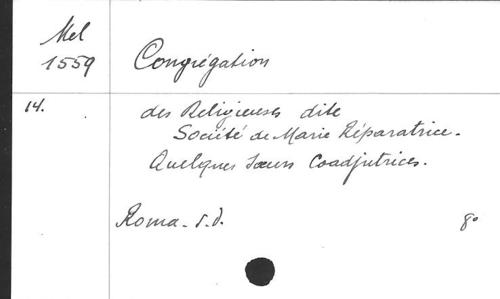 Mel
1559
Congrégation
14.
des Religieuses dite
Société de Marie Réparatrice.
Quelques Sœurs Coadjutrices.
Roma. s.d. 8º